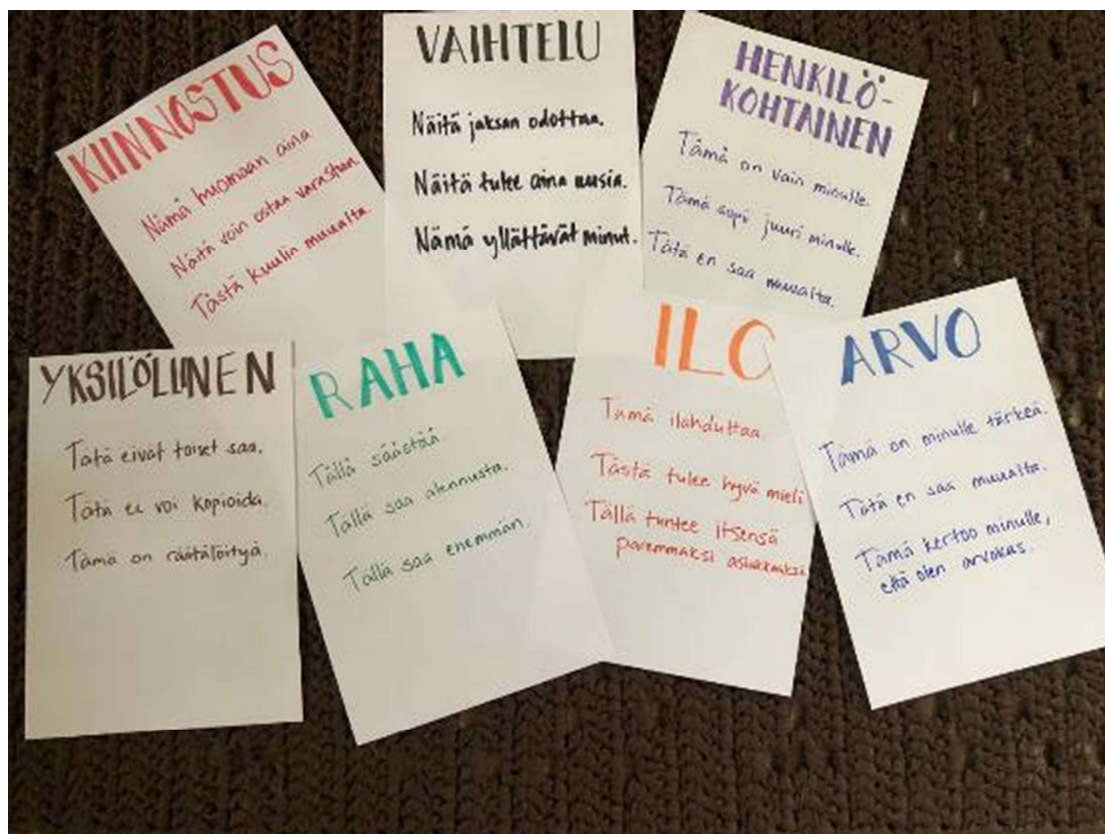 KIINNOSTUS
Nämä huomaan aina
Näitä voin ostaa varastoon.
Tästä kuulin muualta.
VAIHTELU
Näitä jaksan odottaa.
Näitä tulee aina uusia.
Nämä yllättävät minut.
HENKILÖ-
KOHTAINEN
Tämä on vain minulle.
Tämä sopii juuri minulle.
Tätä en saa muualta.
YKSILÖLLINEN
Tätä eivät toiset saa.
Tätä ei voi kopioida.
Tämä on räätälöityä.
RAHA
Tällä säästää
Tällä saa alennusta.
Tällä saa enemmän.
ILO
Tämä ilahduttaa.
Tästä tulee hyvä mieli
Tällä tuntee itsensä
paremmaksi asiakkaaksi
ARVO
Tämä on minulle tärkeä.
Tätä en saa muualta.
Tämä kertoo minulle,
että olen arvokas.